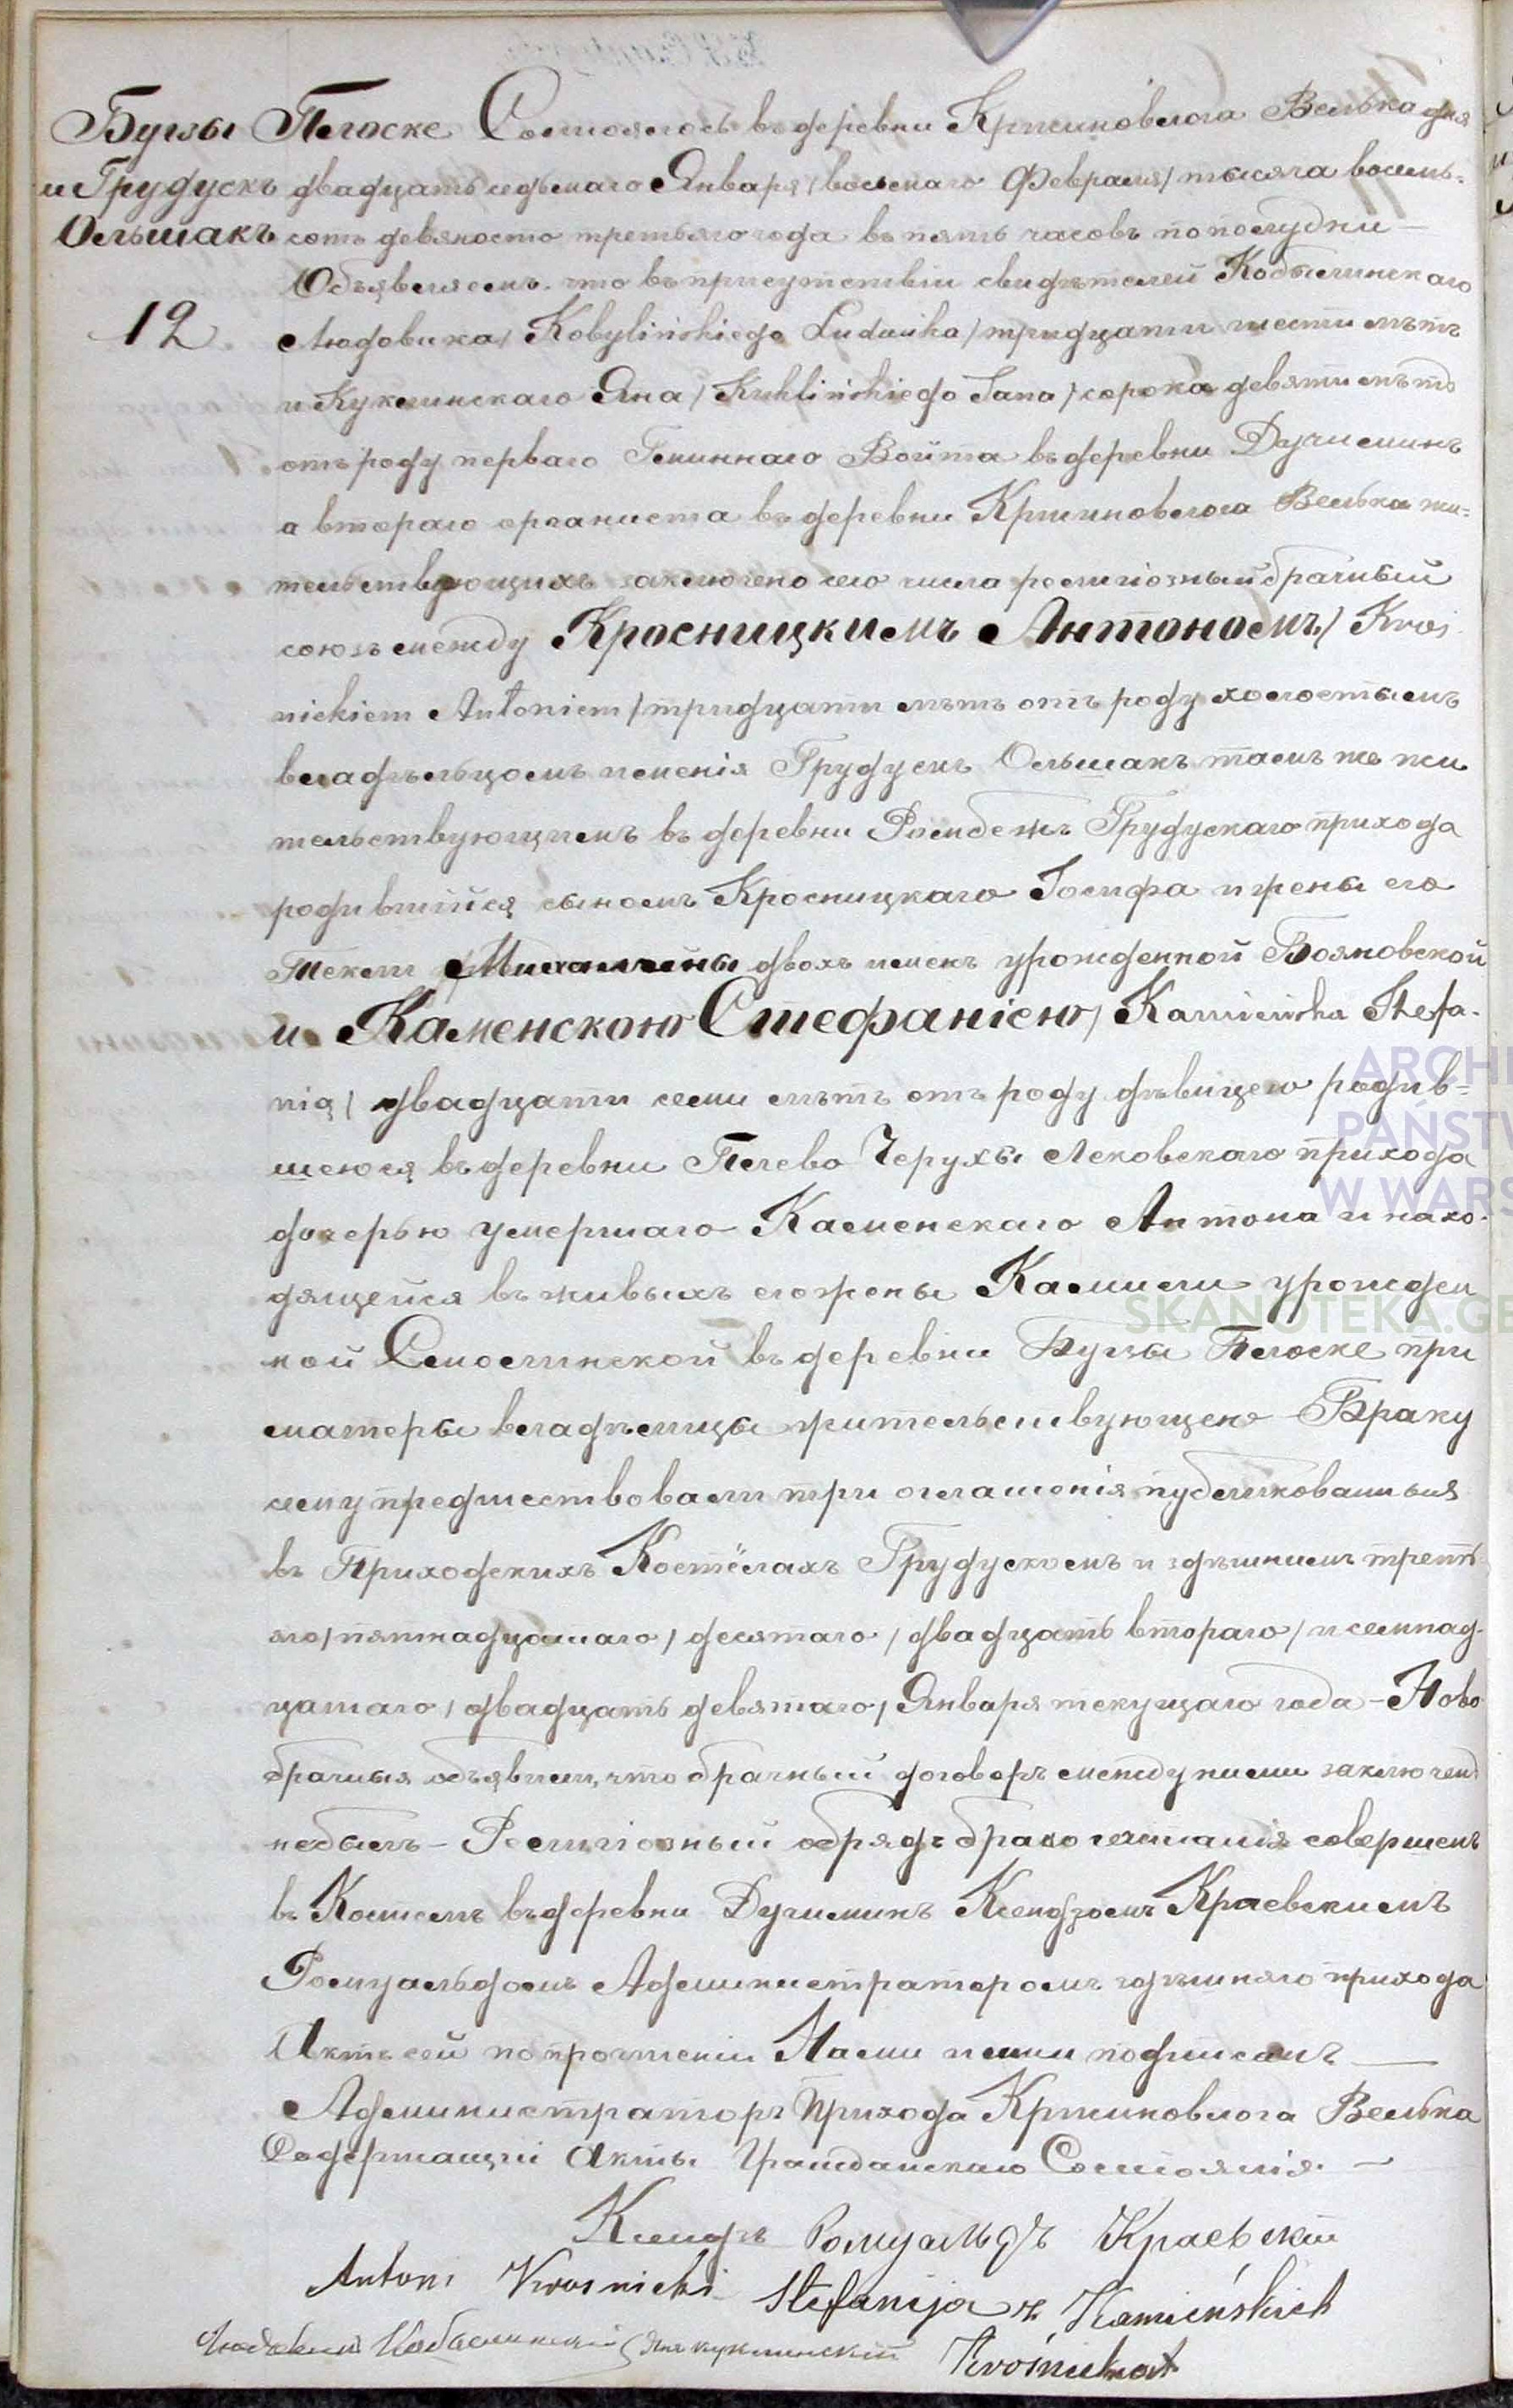 Бугзы Плоске Состоялось въ деревни Кржиновлога Велька дня
и Грудускъ двадцать седьмаго Января /восьмаго Февраля/ тысяча восемь-
Ольшакъ сотъ девяносто третьяго года въ пять часовъ пополудни —
Объявляемъ что въ присутствіи свидѣтелей Кобылинскаго
12. Людовика / Kobylińskiego Ludwika / тридцати шести лѣтъ
и Куклинскаго Яна / Kuklińskiego Jana / сорока девяти лѣтъ
отъ роду перваго Гминнаго Войта въ деревни Дучиминъ
а втораго органиста въ деревни Кржиновлога Велька жи-
тельствующихъ заключено сего числа религіозный брачный
союзъ между Кросницкимъ Антономъ / Kroś
nickiem Antoniem / тридцати лѣтъ отъ роду холостымъ
владѣльцомъ имѣнія Грудускъ Ольшакъ тамъ же жи
тельствующимъ въ деревни Ромбежъ Грудускаго прихода
родившійся сыномъ Кросницкаго Іосифа и жены его
Текли двохъ именъ урожденной Бояновской
и Каменскою Стефаніею / Kamieńska Stefa-
nią / двадцати семи лѣтъ отъ роду дѣвицею родив-
шеюся въ деревни Пвлево Черухы Лековскаго прихода
дочерью умершаго Каменскаго Антона и нахо-
дящейся въ живыхъ его жены Камили урожден
ной Смосминской въ деревни Бугзы Плоске при
матеры владѣлицы жительствующею Браку
сему предшествовали три оглашенія публикованныя
въ Приходскихъ Костёлахъ Грудускомъ и здѣшнимъ треть
яго / пятнадцатаго / десятаго / двадцать втораго / и семнад-
цатаго / двадцать девятаго / Января текущаго года – Ново
брачныя объявили, что брачный договоръ между ними заключенъ
небылъ – Религіозный обрядъ бракосочетанія совершенъ
въ Костелѣ въ деревни Дучиминъ Ксендзомъ Краевскимъ
Ромуальдомъ Администраторомъ здѣшняго прихода
Актъ сей по прочтеніи Нами и ними подписанъ —
Администраторъ Прихода Кржиновлога Велька
Содержащій Акты Гражданскаго Состоянія. —
Ксендзъ Ромуальдъ Краевскій
Antoni Krośnicki Stefanija z Kamieńskich
Людовикъ Кобылинскій Янъ Куклинскій Krośnicka